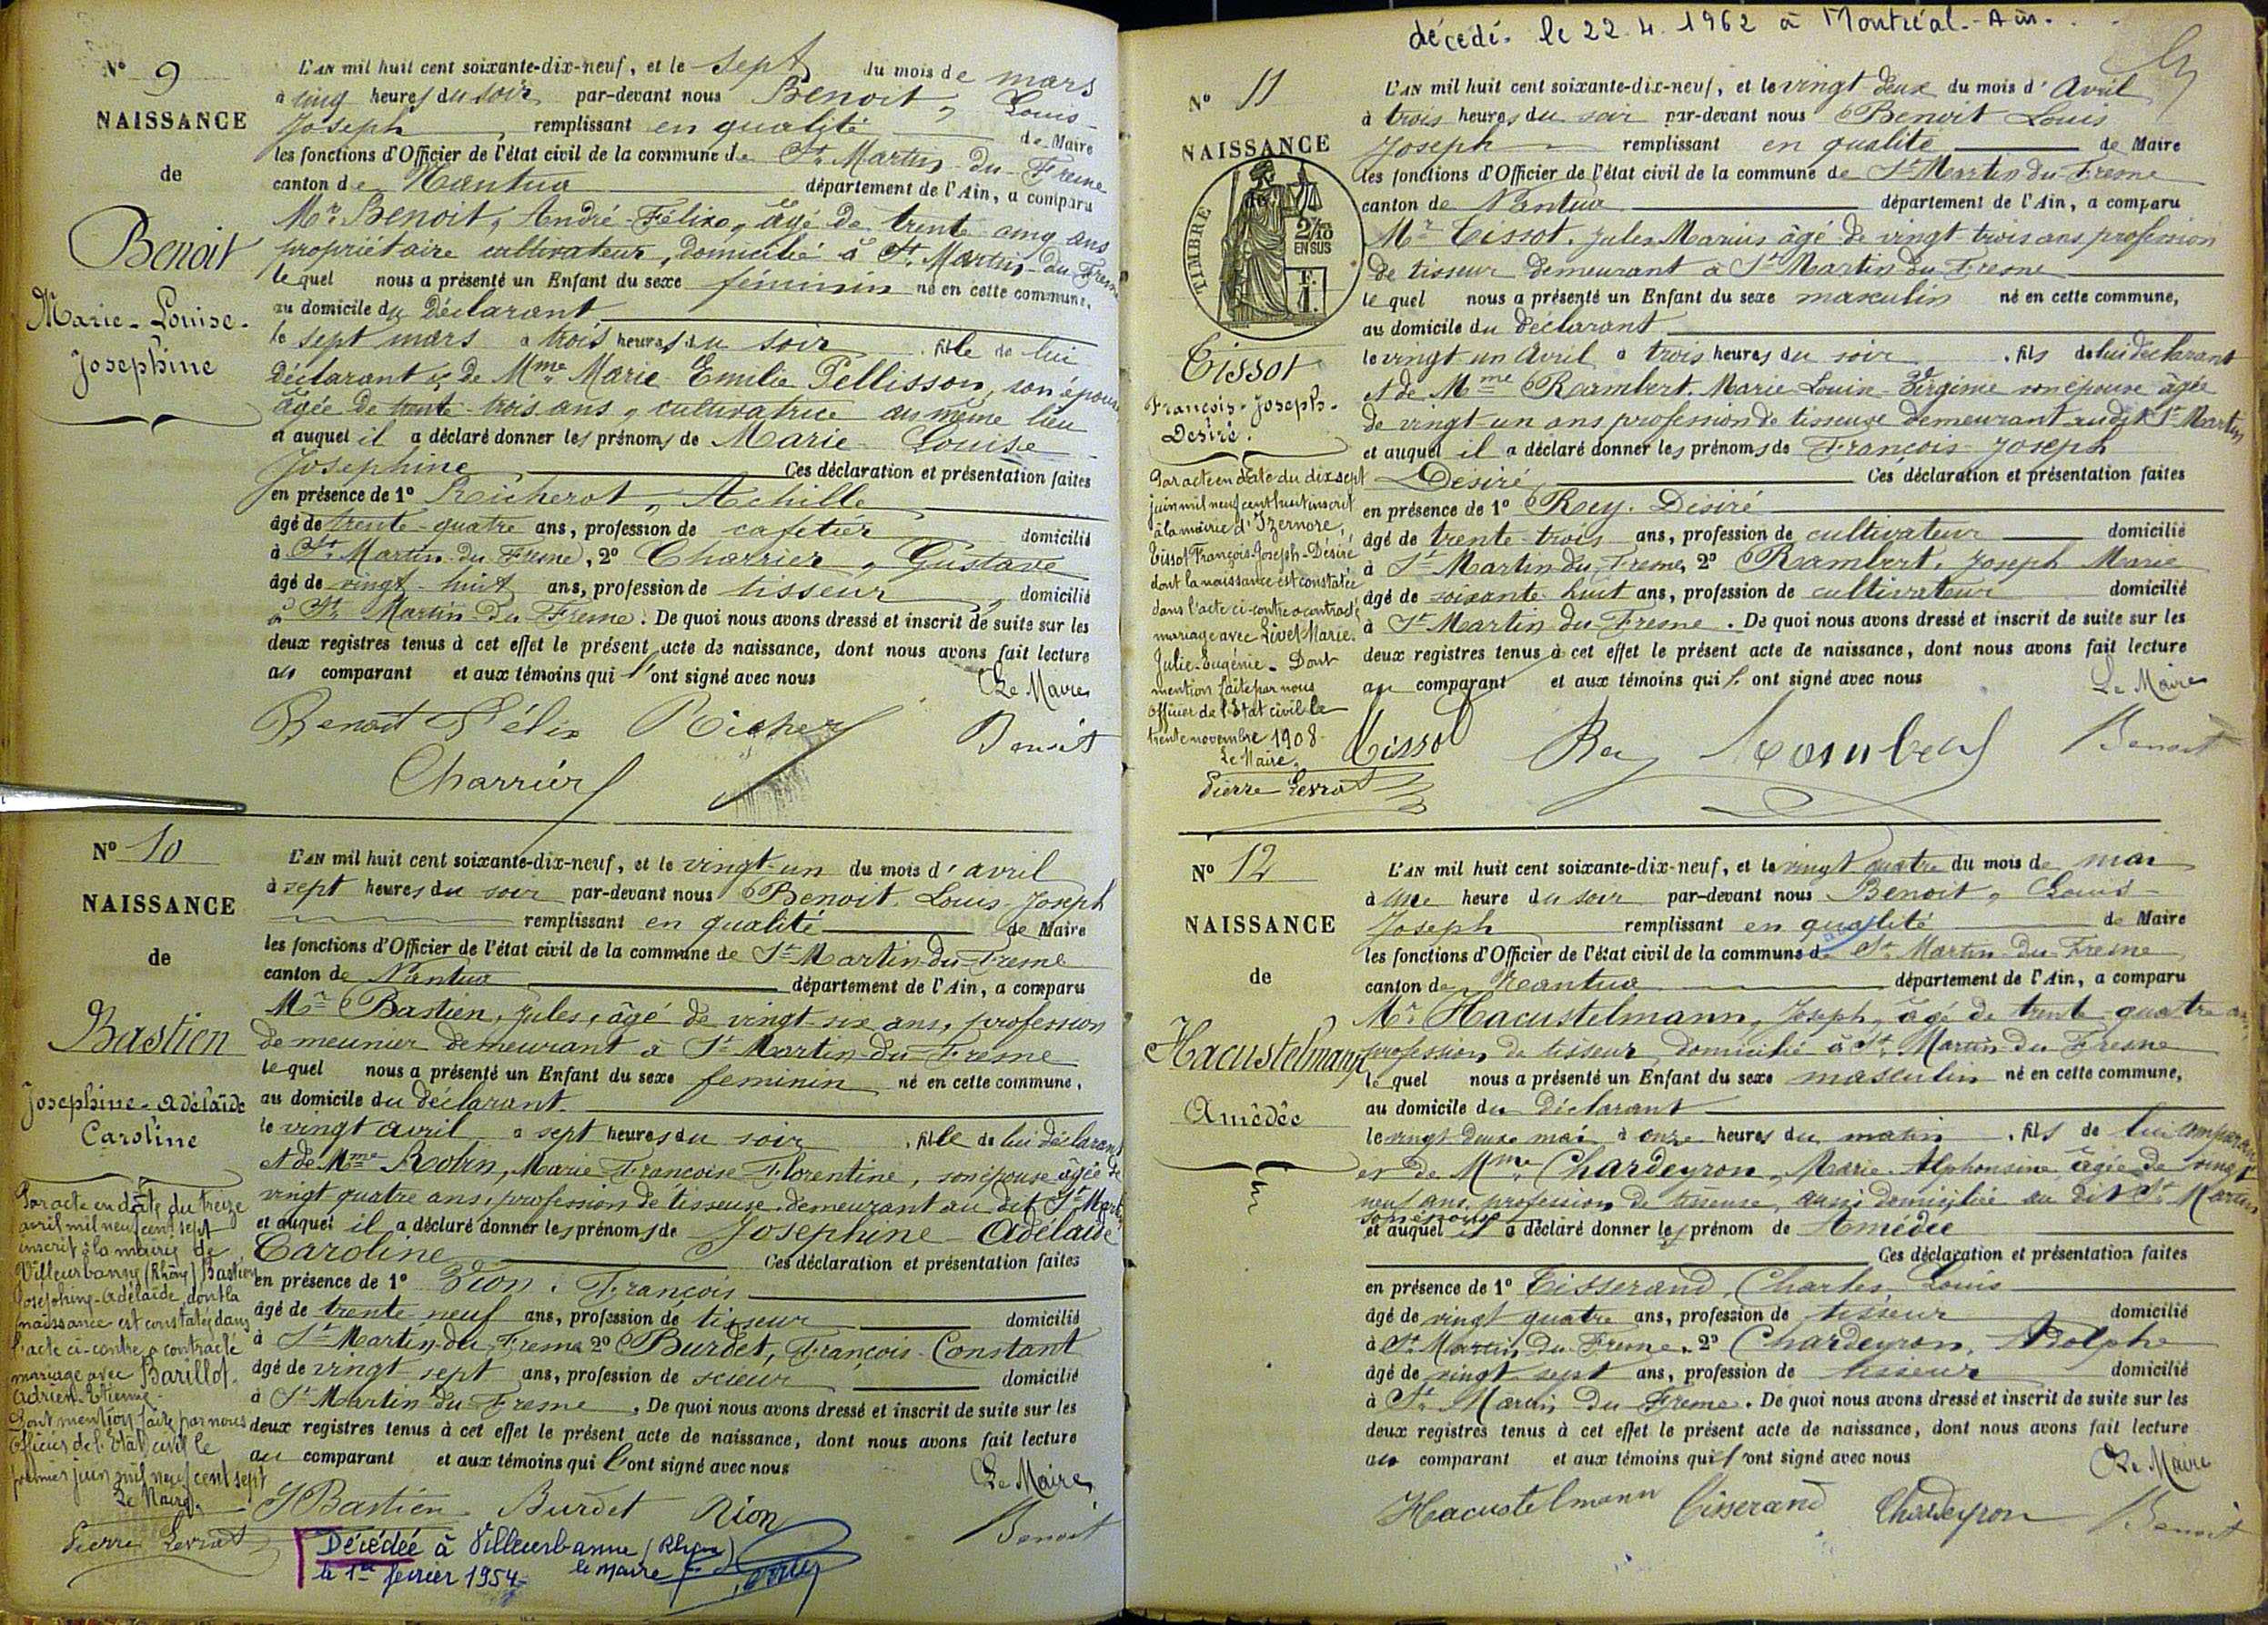 N° 9
NAISSANCE
de
Benoit
Marie-Louise-
Josephine
L'AN mil huit cent soixante-dix-neuf, et le sept du mois de mars
à cinq heures du soir par-devant nous Benoit, Louis-
Joseph remplissant en qualité de Maire
les fonctions d'Officier de l'état civil de la commune de St Martin-du-Fresne
canton de Nantua département de l'Ain, a comparu
Mr Benoit, André-Félix, âgé de trente cinq ans
propriétaire cultivateur, domicilié à St Martin-du-Fresne
le quel nous a présenté un Enfant du sexe féminin né en cette commune,
au domicile du Déclarant
le sept mars à trois heures du soir, fille de lui
déclarant & de Mme Marie Emilie Pellisson, son épouse
âgée de trente-trois ans, cultivatrice au même lieu
et auquel il a déclaré donner les prénoms de Marie-Louise-
Josephine Ces déclaration et présentation faites
en présence de 1° Richerot, Achille
âgé de trente-quatre ans, profession de cafetier domicilié
à St Martin-du-Fresne, 2° Charrier, Gustave
âgé de vingt-huit ans, profession de tisseur, domicilié
à St Martin-du-Fresne. De quoi nous avons dressé et inscrit de suite sur les
deux registres tenus à cet effet le présent acte de naissance, dont nous avons fait lecture
au comparant et aux témoins qui l'ont signé avec nous
Le Maire
Benoit Félix Richerot Benoit
Charrier
N° 10
NAISSANCE
de
Bastien
Josephine-Adélaïde
Caroline
Par acte en date du treize
avril mil neuf cent sept
inscrit à la mairie de
Villeurbanne (Rhône) Bastien
Josephine-Adélaïde, dont la
naissance est constatée dans
l'acte ci-contre a contracté
mariage avec Barillot
Adrien-Etienne-
Dont mention faite par nous
Officier de l'Etat civil le
premier juin mil neuf cent sept
Le Maire,
Pierre Levrat
L'AN mil huit cent soixante-dix-neuf, et le vingt-un du mois d'avril
à sept heures du soir par-devant nous Benoit, Louis-Joseph
remplissant en qualité de Maire
les fonctions d'Officier de l'état civil de la commune de St Martin-du-Fresne
canton de Nantua département de l'Ain, a comparu
Mr Bastien, Jules, âgé de vingt-six ans, profession
de meunier demeurant à St Martin-du-Fresne
le quel nous a présenté un Enfant du sexe feminin né en cette commune,
au domicile du déclarant
le vingt avril à sept heures du soir, fille de lui déclarant
et de Mme Robin, Marie Françoise Florentine, son épouse âgée de
vingt quatre ans, profession de tisseuse demeurant au dit St Martin
et auquel il a déclaré donner les prénoms de Josephine-Adélaïde
Caroline Ces déclaration et présentation faites
en présence de 1° Dion, François
âgé de trente neuf ans, profession de tisseur domicilié
à St Martin-du-Fresne 2° Burdet, François-Constant
âgé de vingt sept ans, profession de scieur domicilié
à St Martin du Fresne. De quoi nous avons dressé et inscrit de suite sur les
deux registres tenus à cet effet le présent acte de naissance, dont nous avons fait lecture
au comparant et aux témoins qui l'ont signé avec nous
Le Maire
J Bastien Burdet Dion Benoit
Décédée à Villeurbanne (Rhône)
le 1er février 1954- le Maire
décédé le 22.4.1962 à Montréal-Ain.
N° 11
NAISSANCE
TIMBRE
2/10
EN SUS
F.
1.
Tissot
François-Joseph-
Désiré.
Par acte en date du dix sept
juin mil neuf cent huit inscrit
à la mairie d'Izernore,
Tissot François-Joseph-Désiré
dont la naissance est constatée
dans l'acte ci-contre a contracté
mariage avec Livet Marie-
Julie-Eugénie- Dont
mention faite par nous
Officier de l'Etat civil le
trente novembre 1908-
Le Maire,
Pierre Levrat
L'AN mil huit cent soixante-dix-neuf, et le vingt-deux du mois d'Avril
à trois heures du soir par-devant nous Benoit Louis
Joseph remplissant en qualité de Maire
les fonctions d'Officier de l'état civil de la commune de St Martin du Fresne
canton de Nantua département de l'Ain, a comparu
Mr Tissot, Jules Marius âgé de vingt trois ans, profession
de tisseur demeurant à St Martin du Fresne
le quel nous a présenté un Enfant du sexe masculin né en cette commune,
au domicile du déclarant
le vingt un Avril à trois heures du soir, fils de lui déclarant
et de Mme Rambert, Marie-Louise-Virginie son épouse âgée
de vingt-un ans profession de tisseuse demeurant audit St Martin
et auquel il a déclaré donner les prénoms de François-Joseph
Désiré Ces déclaration et présentation faites
en présence de 1° Rey. Désiré
âgé de trente-trois ans, profession de cultivateur domicilié
à St Martin-du-Fresne, 2° Rambert, Joseph Marie
âgé de soixante-huit ans, profession de cultivateur domicilié
à St Martin du Fresne. De quoi nous avons dressé et inscrit de suite sur les
deux registres tenus à cet effet le présent acte de naissance, dont nous avons fait lecture
au comparant et aux témoins qui l'ont signé avec nous
Le Maire
Tissot Rey Rambert Benoit
N° 12
NAISSANCE
de
Hacustelmann
Amédée
L'AN mil huit cent soixante-dix-neuf, et le vingt quatre du mois de mai
à une heure du soir par-devant nous Benoit, Louis-
Joseph remplissant en qualité de Maire
les fonctions d'Officier de l'état civil de la commune de St Martin-du-Fresne
canton de Nantua département de l'Ain, a comparu
Mr Hacustelmann, Joseph, âgé de trente-quatre ans
profession de tisseur, domicilié à St Martin-du-Fresne
le quel nous a présenté un Enfant du sexe masculin né en cette commune,
au domicile du Déclarant
le vingt deux mai à onze heures du matin, fils de lui comparant
et de Mme Chardeyron, Marie-Alphonsine âgée de vingt
neuf ans, profession de tisseuse, aussi domiciliée au dit St Martin
son épouse
et auquel il a déclaré donner les prénom de Amédée
Ces déclaration et présentation faites
en présence de 1° Tisserand, Charles-Louis
âgé de vingt quatre ans, profession de tisseur domicilié
à St Martin-du-Fresne, 2° Chardeyron, Adolphe
âgé de vingt sept ans, profession de tisseur domicilié
à St Martin Du Fresne. De quoi nous avons dressé et inscrit de suite sur les
deux registres tenus à cet effet le présent acte de naissance, dont nous avons fait lecture
au comparant et aux témoins qui l'ont signé avec nous
Le Maire
Hacustelmann Tisserand Chardeyron Benoit